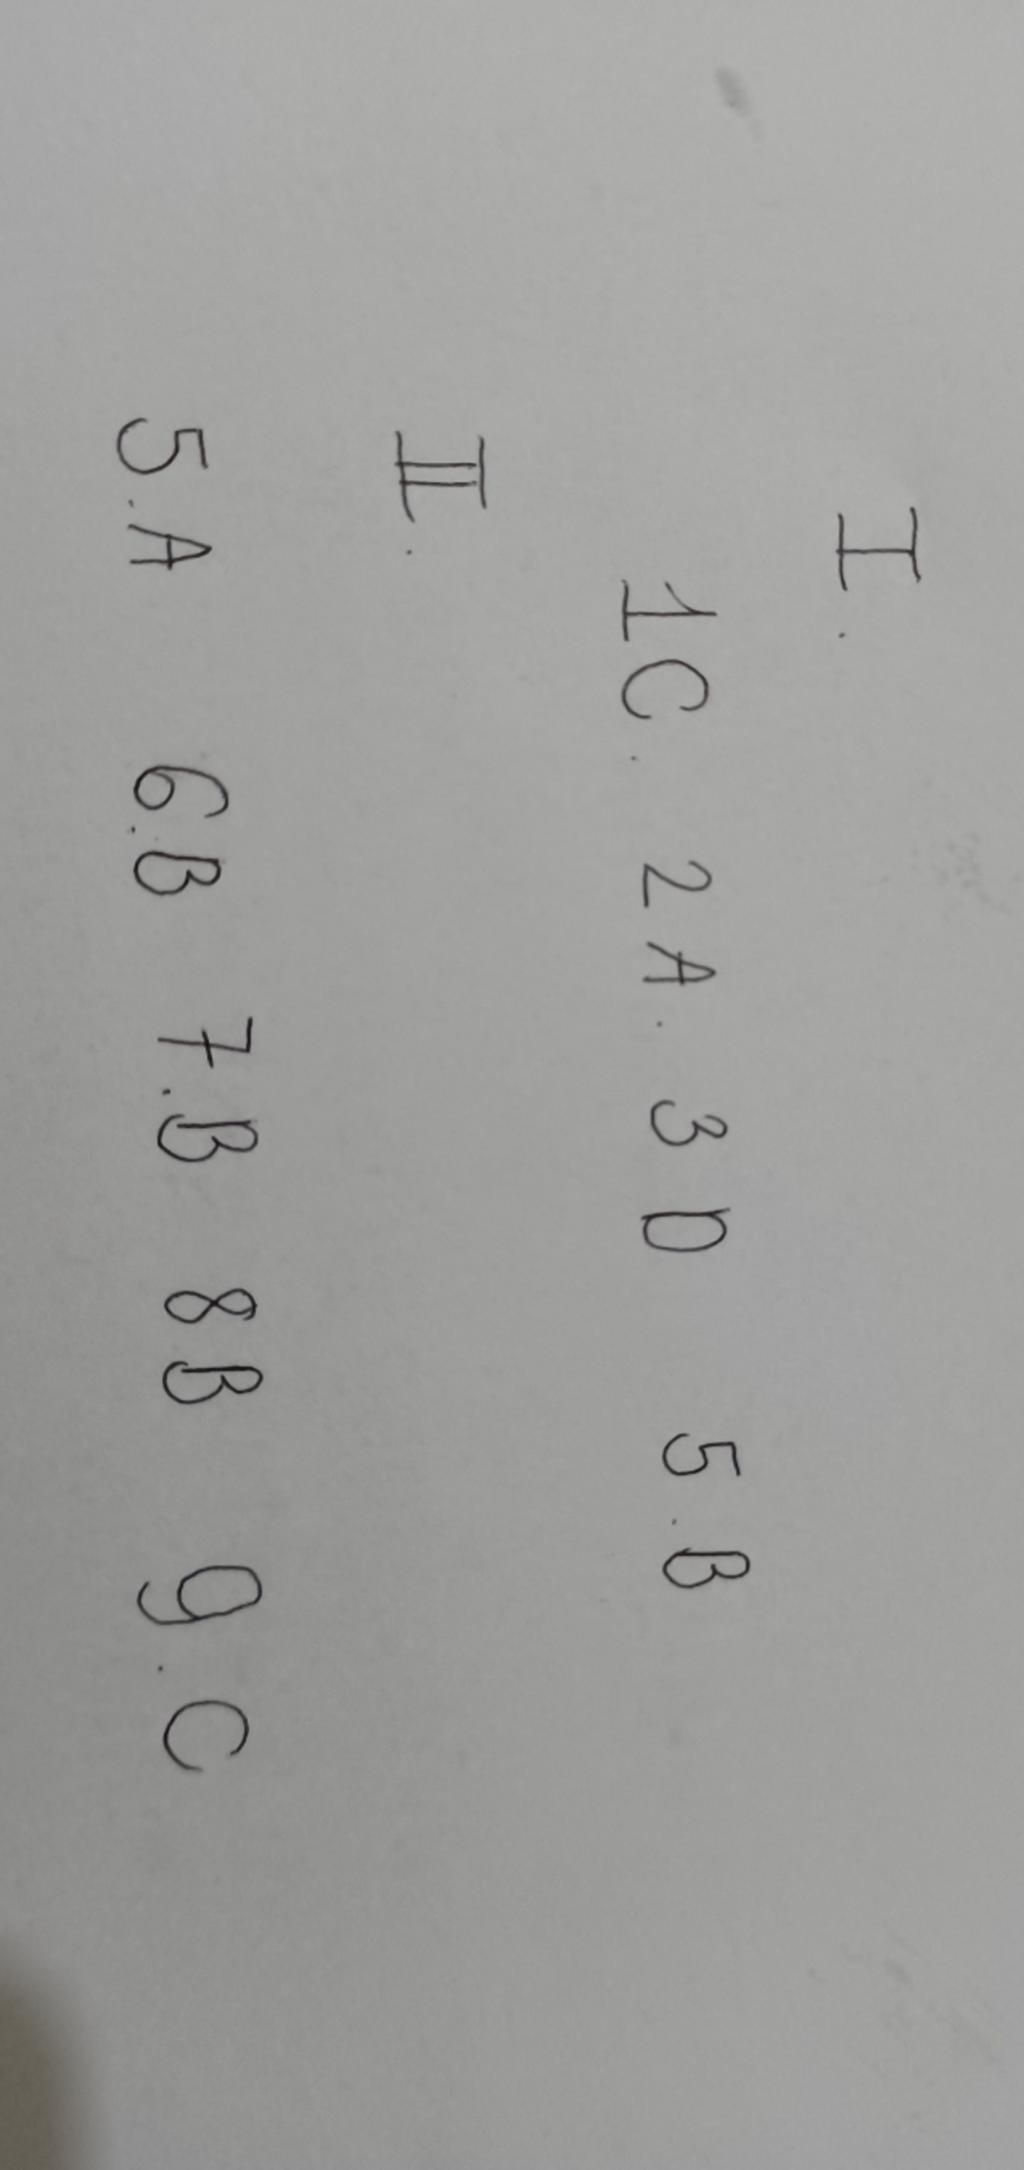 I.
1C. 2A. 3D 5.B
II.
5.A 6.B 7.B 8B 9.C